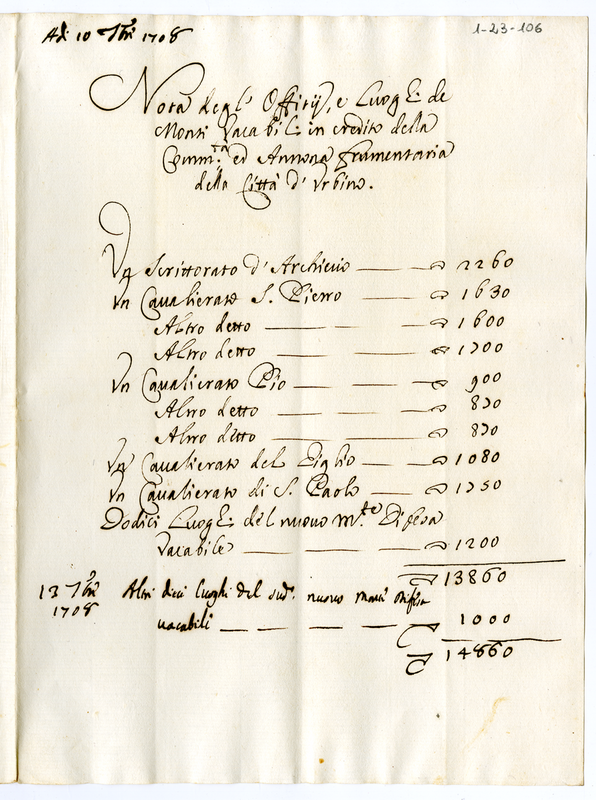 Adì 10 7bre 1708
1-23-106
Nota degl' Offitij, e Luogh: de
Monti Vacabil: in credito della
Comm.tà ed Annona frumentaria
della Città d' Urbino.
Un Scrittorato d' Archivio — — 2260
Un Cavalierato S. Pietro — — 1630
Altro detto — — — 1600
Altro detto — — — 1700
Un Cavalierato Pio — — — 900
Altro detto — — — 870
Altro detto — — — 870
Un Cavalierato del Giglio — — 1080
Un Cavalierato di S. Paolo — — 1750
Dodici Luogh: del nuovo M.te Difesa
Vacabile — — — 1200
13860
13 7bre 1708
Altri dieci luoghi del sud.º nuovo monte difesa
vacabili — — — — 1000
14860